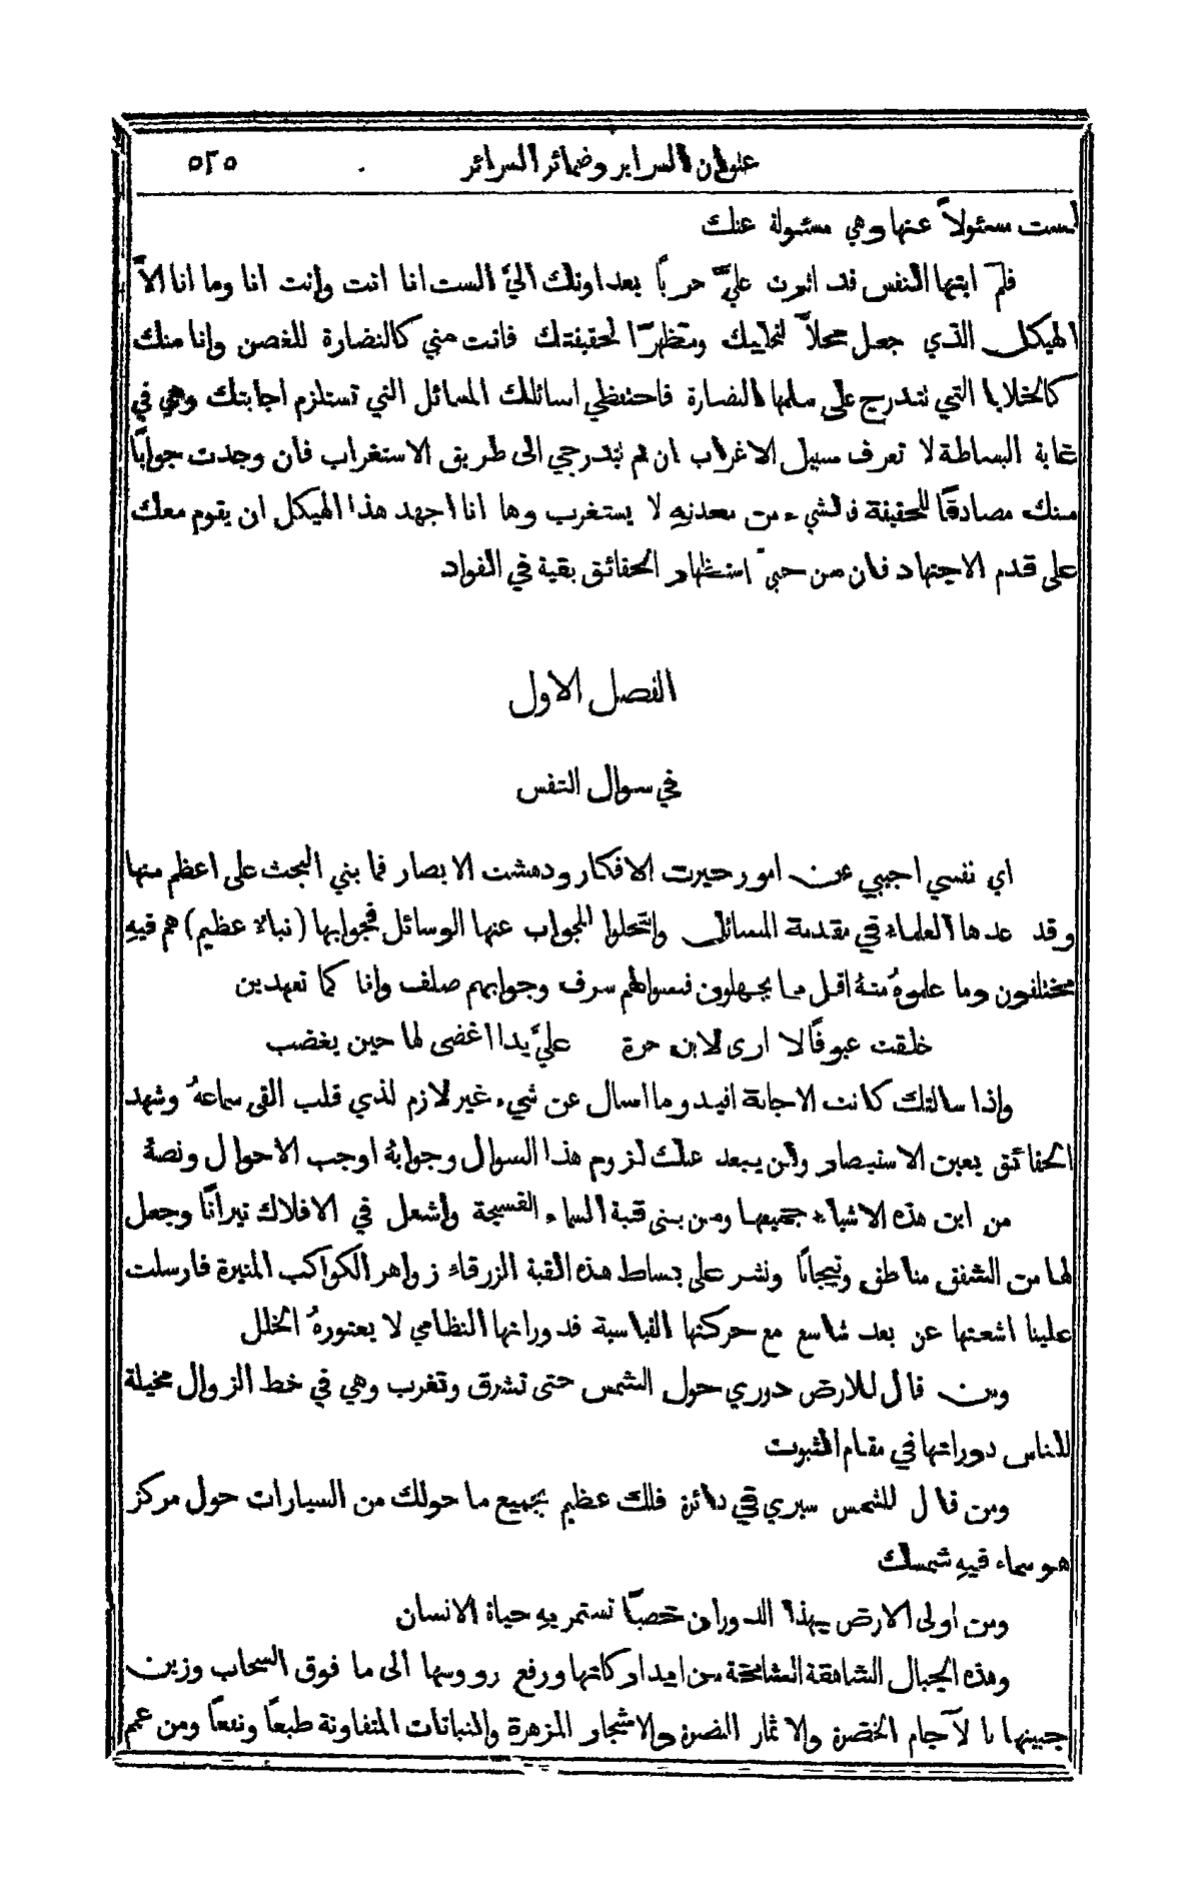 عنوان السراير وضمائر السرائر ٥٢٥
لست سئولاً عنها وهي مسئولة عنك
فلمَ ايتها النفس قد اثرت عليَّ حرباً بعد اونك اليَّ الست انا انت وانت انا وما انا الاَّ
الهيكل الذي جعل محلاً لتجليك ومظهرًا لحقيقتك فانت مني كالنضارة للغصن وانا منك
كالخلايا التي نتدرج على سلمها النضارة فاحتفظي اسائلك المسائل التي تستلزم اجابتك وهي في
غاية البساطة لا تعرف سبيل الاغراب ان لم نتدرجي الى طريق الاستغراب فان وجدت جوابًا
منك مصادقًا للحقيقة فالشيء من معدنهِ لا يستغرب وها انا اجهد هذا الهيكل ان يقوم معك
على قدم الاجتهاد فان من حبي استظهار الحقائق بقية في الفواد
الفصل الاول
في سوال النفس
اي نفسي اجيبي عن امور حيرت الافكار ودهشت الابصار فما بني البحث على اعظم منها
وقد عدها العلماء في مقدمة المسائل وانتحلوا للجواب عنها الوسائل فجوابها (نبالا عظيم) هم فيهِ
مختلفون وما علموهُ منهُ اقل مما يجهلون فسوالهم سرف وجوابهم صلف وانا كما تعهدين
خلقت عيوفًا لا ارى لابن حرة عليَّ يدا اغضى لها حين يغضب
واذا سالتك كانت الاجابة افيد وما اسال عن شيء غير لازم لذي قلب القى سماعهُ وشهد
الحقائق بعين الاستبصار ولن يبعد عنك لزوم هذا السوال وجوابهُ اوجب الاحوال ونصهُ
من اين هذه الاشياء جميعها ومن بنى قبة السماء الفسيحة واشعل في الافلاك نيرانًا وجعل
لها من الشفق مناطق وتيجانًا ونشر على بساط هذه القبة الزرقاء زواهر الكواكب المنيرة فارسلت
علينا اشعتها عن بعد شاسع مع حركتها القياسية فدورانها النظامي لا يعتورهُ الخلل
ومن قال للارض دوري حول الشمس حتى تشرق وتغرب وهي في خط الزوال مخيلة
للناس دورانها في مقام الثبوت
ومن قال للشمس سيري في دائرة فلك عظيم بجميع ما حولك من السيارات حول مركز
هو سماء فيهِ شمسك
ومن اولى الارض بهذا الدوران خصبًا تستمر بهِ حياة الانسان
وهذه الجبال الشاهقة الشامخة من امد اركانها ورفع رووسها الى ما فوق السحاب وزين
جبينها بالآجام الخضرة والاثمار النضرة والاشجار المزهرة والنباتات المتفاوتة طبعًا ونفعًا ومن عمم